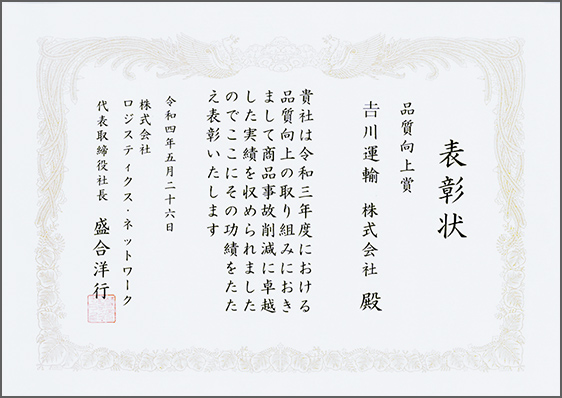 表彰状
品質向上賞
𠮷川運輸 株式会社 殿
貴社は令和三年度における
品質向上の取り組みにおき
まして商品事故削減に卓越
した実績を収められました
のでここにその功績をたた
え表彰いたします
令和四年五月二十六日
株式会社
ロジスティクス・ネットワーク
代表取締役社長 盛合洋行